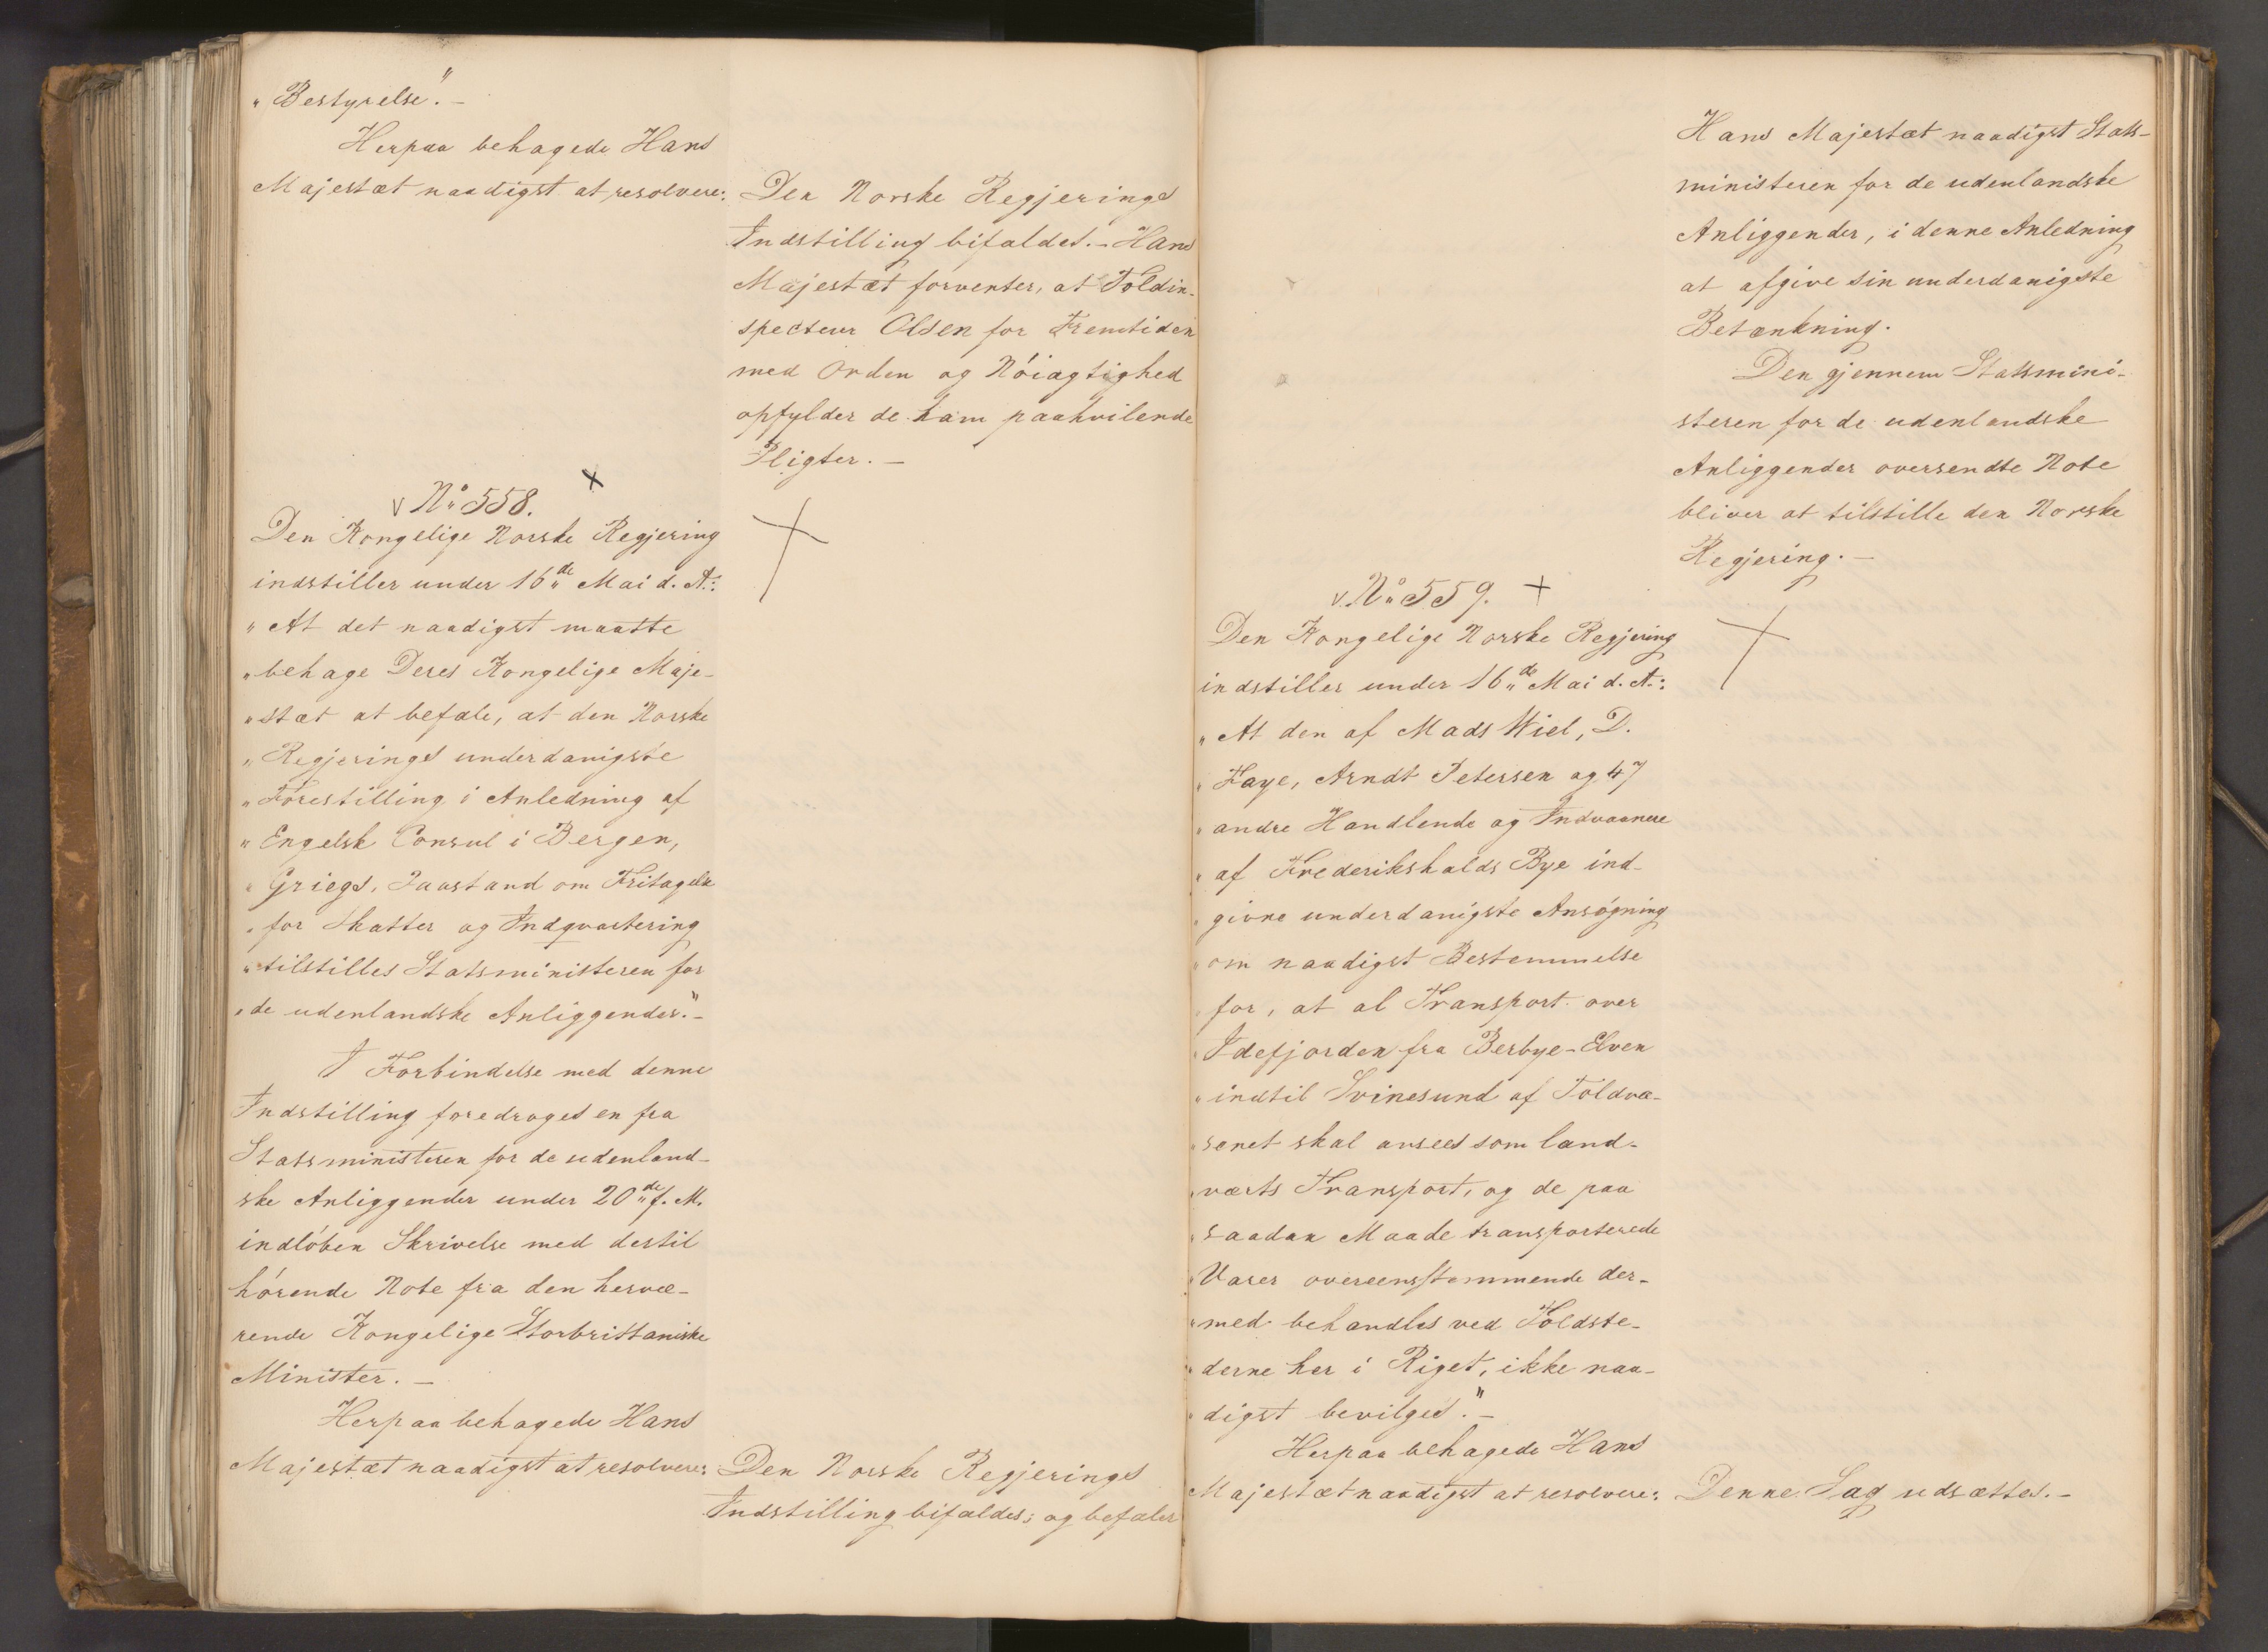 „Bestyrelse”. –
Herpaa behagede Hans
Majestæt naadigst at resolvere:
Den Norske Regjerings
Indstilling bifaldes. – Hans
Majestæt forventer, at Toldin-
specteur Olsen for Fremtiden
med Orden og Nóiagtighed
opfylder de ham paahvilende
Pligter. –
No 558.
Den Kongelige Norske Regjering
indstiller under 16de Mai d. A.:
„At det naadigst maatte
„behage Deres Kongelige Maje-
„stæt at befale, at den Norske
„Regjerings underdanigste
„Forestilling i Anledning af
„Engelsk Consul i Bergen,
„Griegs, Paastand om Fritagelse
„for Skatter og Indqvartering
„tilstilles Statsministeren for
„de udenlandske Anliggender.” –
I Forbindelse med denne
Indstilling foredroges en fra
Statsministeren for de udenland-
ske Anliggender under 20de f. M.
indlóben Skrivelse med dertil
hórende Note fra den hervæ-
rende Kongelige Storbrittaniske
Minister. –
Herpaa behagede Hans
Majestæt naadigst at resolvere:
Den Norske Regjerings
Indstilling bifaldes; og befaler
Hans Majestæt naadigst Stats-
ministeren for de udenlandske
Anliggender, i denne Anledning
at afgive sin underdanigste
Betænkning.
Den gjennem Statsmini-
steren for de udenlandske
Anliggender oversendte Note
bliver at tilstille den Norske
Regjering. –
No 559.
Den Kongelige Norske Regjering
indstiller under 16de Mai d. A.:
„At den af Mads Wiel, D.
„Faye, Arndt Petersen og 47
„andre Handlende og Indvaanere
„af Frederikshalds Bye ind-
„givne underdanigste Ansógning
„om naadigst Bestemmelse
„for, at al Transport over
„Idefjorden fra Berbye-Elven
„indtil Svinesund af Toldvæ-
„senet skal ansees som land-
„værts Transport, og de paa
„saadan Maade transporterede
„Varer overeensstemmende der-
„med behandles ved Toldste-
„derne her i Riget, ikke naa-
„digst bevilges.” –
Herpaa behagede Hans
Majestæt naadigst at resolvere:
Denne Sag udsættes. –